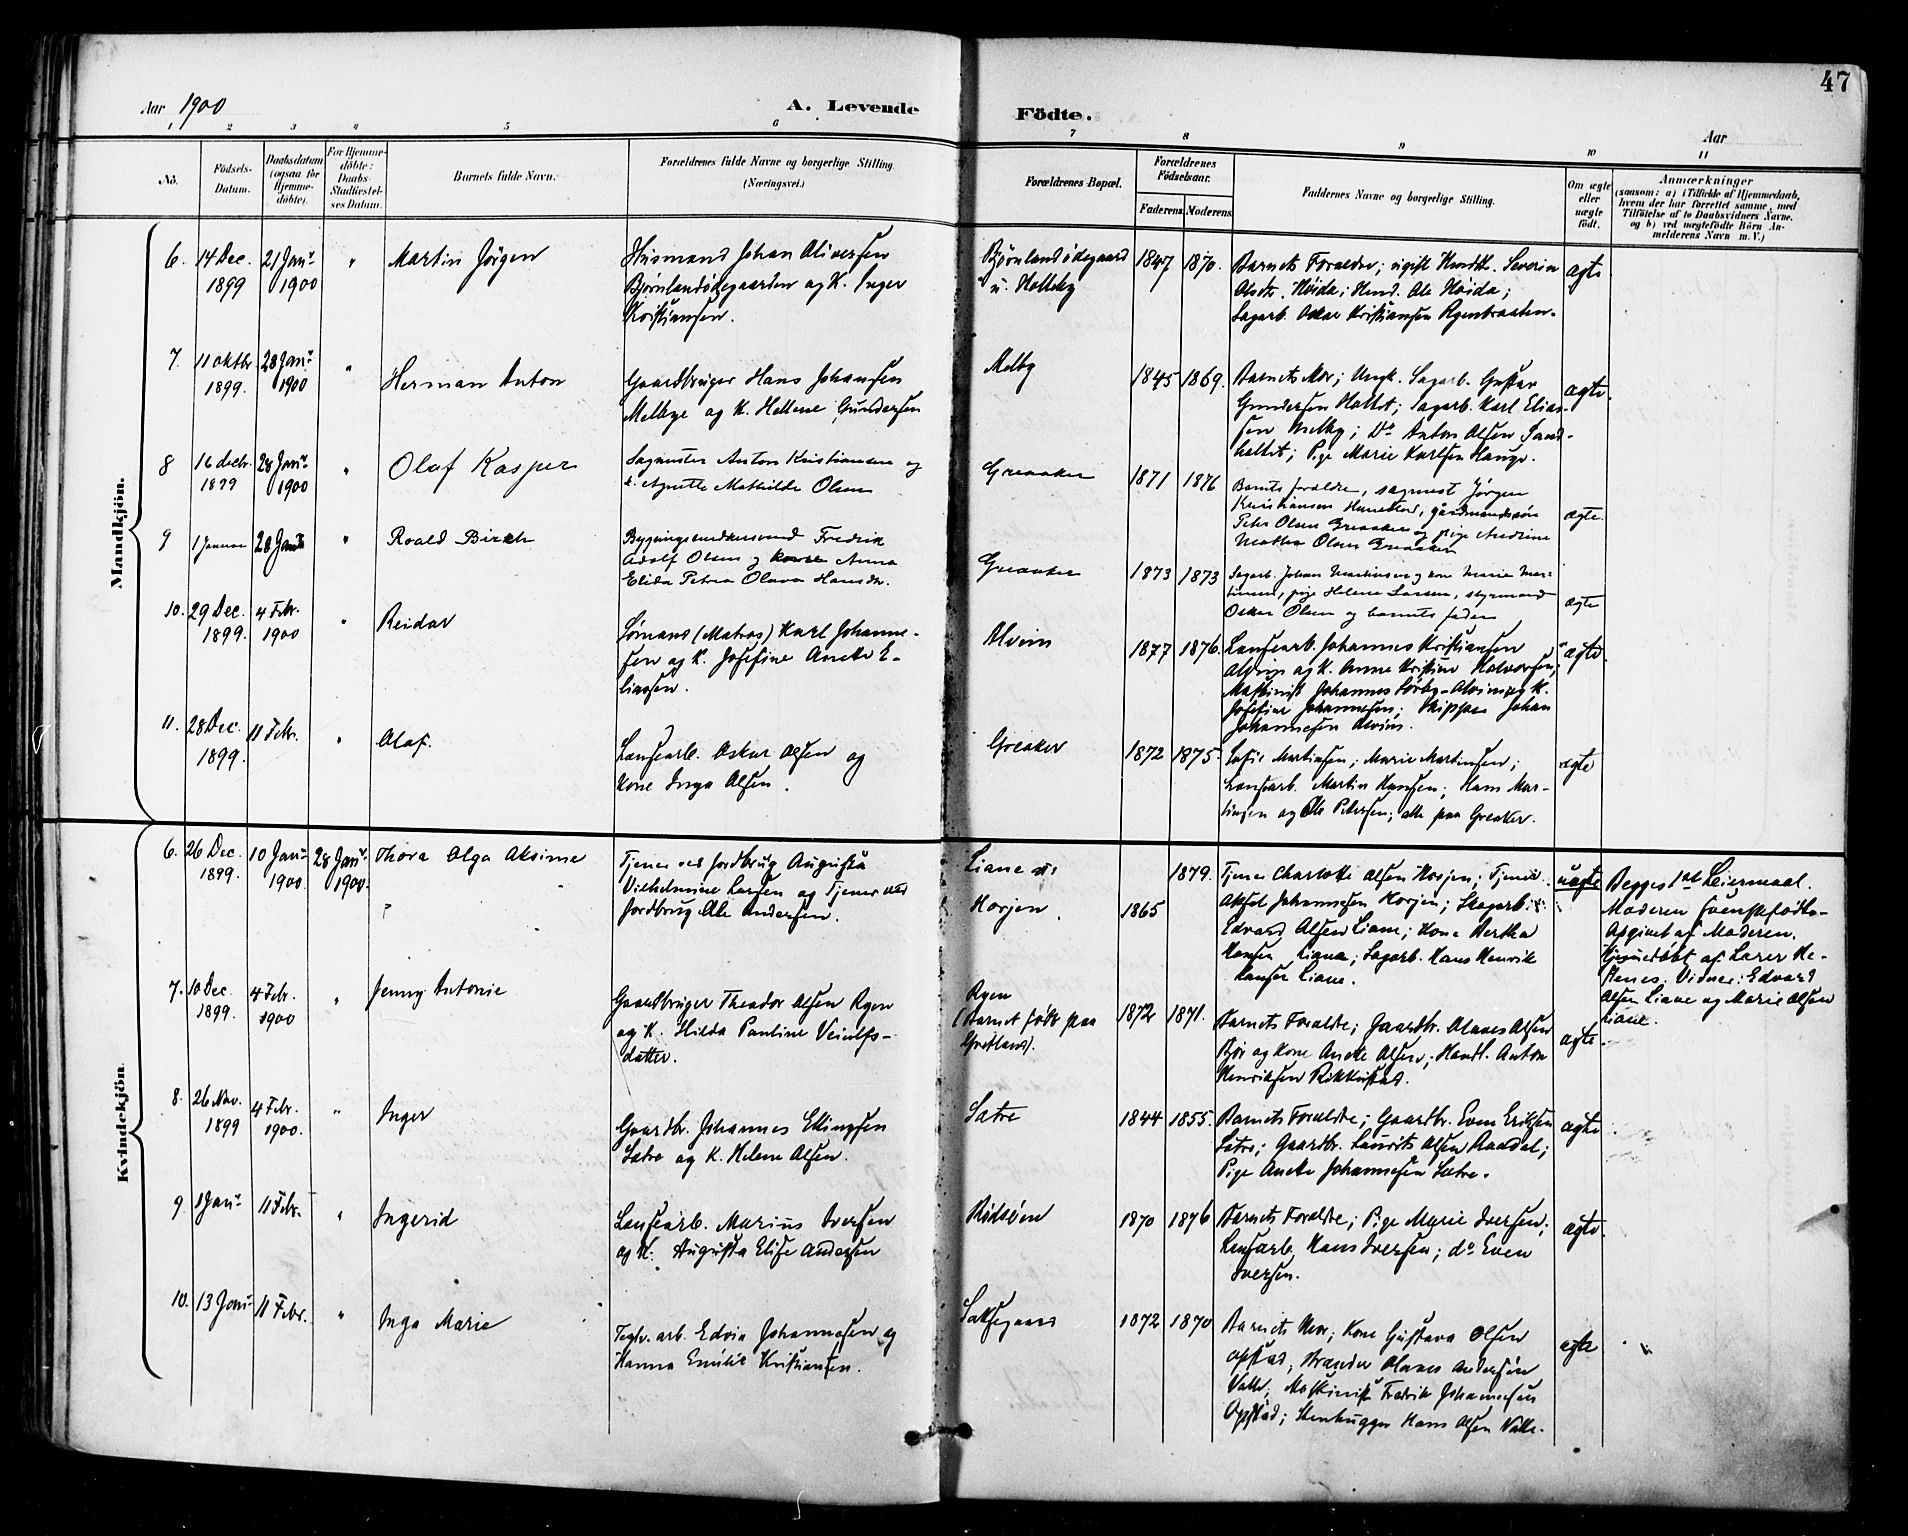 47
Aar 1900
A. Levende Födte.
Aar
1 2 3 4 5 6 7 8 9 10 11
No.
Födsels-
Datum.
Daabsdatum
(ogsaa for
Hjemme-
døbte).
For Hjemme-
døbte:
Daabs-
Stadfæstel-
ses Datum.
Barnets fulde Navn.
Forældrenes fulde Navne og borgerlige Stilling.
(Næringsvei.)
Forældrenes Bopæl.
Forældrenes
Födselsaar.
Faderens. Moderens.
Faddernes Navne og borgerlige Stilling.
Om ægte
eller
uægte
født.
Anmærkninger
(saasom: a) i Tilfælde af Hjemmedaab,
hvem der har forrettet samme, med
Tilföielse af to Daabsvidners Navne.
og b) ved uægtefödte Börn An-
melderens Navn m. V.)
Mandkjön.
6. 14 Dec. 1899
21 Janr 1900
"
Martin Jörgen
Husmand Johan Oliversen
Bjørnlandødegaarden og K. Inger
Kristiansen.
Bjørnlandødegaard
u. Holleby
1847 1870.
Barnets Forældre; ugift Hendk. Severin
Olsdr. Høida; Hend. Ole Høida;
Sagarb. Oskar Kristiansen Rynbraaten.
ægte
7. 11 Oktbr 1899.
28 Janr 1900
"
Herman Anton
Gaardbruger Hans Johansen
Melbye og K. Hellene Gundersen
Melby
1845 1869.
Barnets Mor; Ungk. Sagarb. Gustav
Gundersen Holtet; Sagarb. Karl Elias-
sen Melby; Do Anton Olsen Sand-
holtet; Pige Marie Karlsen Hauge.
ægte.
8 16 decbr. 1899
28 Janr. 1900
"
Olaf Kasper
Sagmester Anton Kristiansen og
k. Agnette Mathilde Olsen
Greaaker
1871 1876
Barnets forældre, sagmest Jørgen
Kristiansen Hannestad, gårdmandssøn
Peter Olsen Greaaker og pige Andrine
Mathea Olsen Greaaker
ægte.
9 1 januar
28 Janr
"
Roald Birch
Bygningssnedkersvend Fredrik
Adolf Olsen og kone Anna
Elida Petra Olava Hansdr.
Greaaker
1873 1873
Sagarb. Johan Martinsen og kone Marie Mar-
tinsen, pige Helene Larsen, styrmand
Oskar Olsen og barnets fader
ægte
10. 29 Dec. 1899.
4 Febr. 1900
"
Reidar
Sømans (Matros) Karl Johanne-
sen og K. Josefine Anette E-
liassen.
Alvim
1877 1876.
Landsearb. Johannes Kristiansen
Alvim og K. Anne Kristine Halvorsen;
Maskinist Johannes Sørby-Alvim og K.
Josefine Johannesen; Skipper Johan
Johannesen Alvim.
ægte.
11. 28 Dec. 1899.
11 Febr.
"
Olaf.
Landsearb. Oskar Olsen og
Kone Inga Olsen.
Greaker
1872 1875.
Sofie Martinsen; Marie Martinsen;
Landsearb. Martin Hansen; Hans Mar-
tinsen og Ole Petersen; alle paa Greaker.
ægte
Kvindekjön.
6. 26 Dec. 1899.
10 Janr 1900.
28 Janr 1900.
Thora Olga Aksime
Tjener ved Jordbrug Augusta
Vilhelmine Larsen og Tjener ved
Jordbrug Ole Andersen.
Liane u.
Horjen
1865 1879.
Tjener Charlotte Olsen Horjen; Tjener
Aksel Johannesen Horjen; Skogarb.
Edvard Olsen Liane; Kone Bertha
Hansen Liane; Sagarb. Hans Henrik
Hansen Liane.
uægte
Begges 1st Leiermaal.
Moderen svenskfødt.
Opgivet af Moderen.
Hjemmedøbt af Lærer He-
stenes. Vidner: Edvard
Olsen Liane og Marie Olsen
Liane.
7. 10 Dec. 1899.
4 Febr. 1900
"
Jenny Antonie
Gaardbruger Theodor Olsen Ryen
og K. Hilda Pauline Veiulfs-
datter.
Ryen
(Barnet født paa
Gretland).
1872 1871.
Barnets Forældre; Gaardbr. Olaves Olsen
Bjør og Kone Anette Olsen; Handl. Anton
Henriksen Rikkestad.
ægte.
8. 26 Nov. 1899
4 Febr. 1900.
"
Inger
Gaardbr. Johannes Ellingsen
Sætre og K. Helene Olsen.
Sætre
1844 1855.
Barnets Forældre; Gaardbr. Even Eriksen
Sætre; Gaardbr. Laurits Olsen Raadal;
Pige Anette Johannesen Sætre.
ægte
9 1 Janr
11 Febr.
"
Ingerid
Landsearb. Marius Iversen
og K. Augusta Elise Andersen
Rødsøen
1870 1876
Barnets Forældre; Pige Marie Iversen;
Lensearb. Hans Iversen; do Even
Iversen.
ægte.
10. 13 Janr
11 Febr.
"
Inga Marie
Teglv. arb. Edvin Johannesen og
Hanna Emilie Kristiansen.
Saksegaard
1872 1870
Barnets Mor; Kone Gustava Olsen
Opstad, Brænder Olaves Andersen
Valle; Maskinist Fredrik Johannesen
Opstad; Stenhugger Hans Olsen Valle.
ægte
"